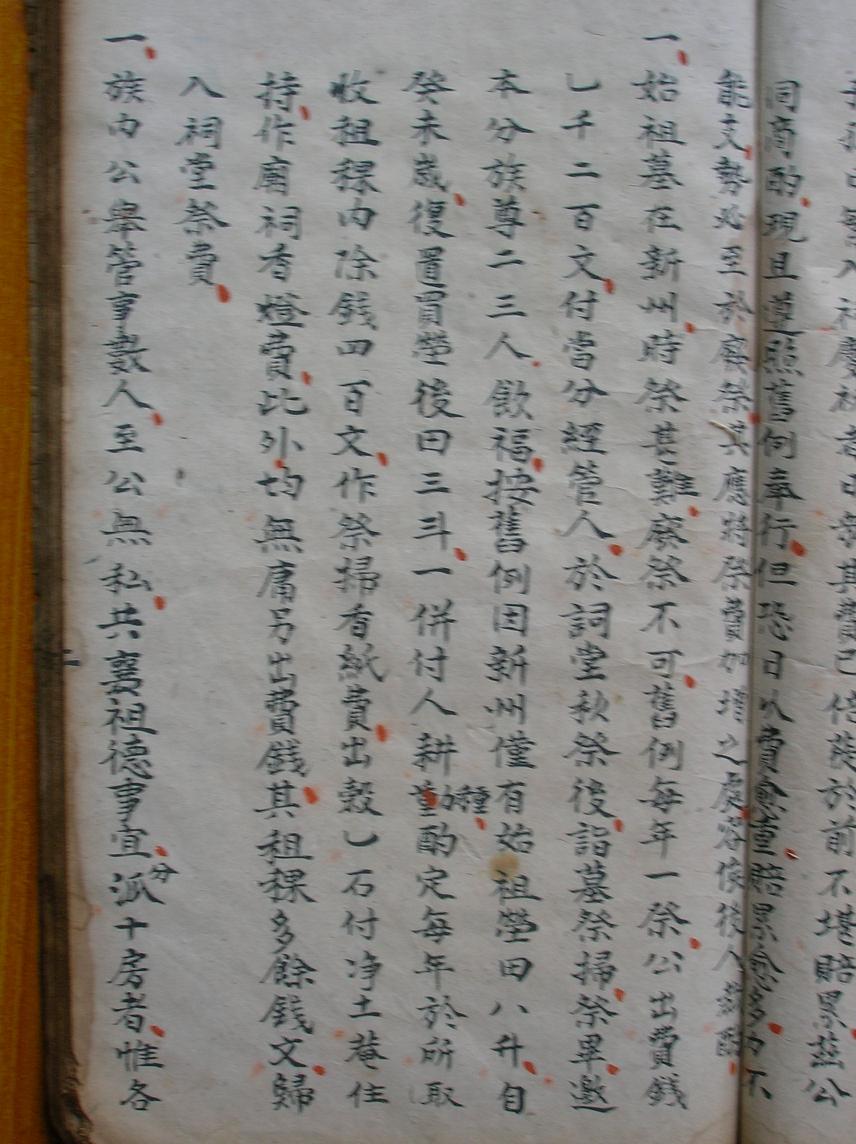 入祠慶祝者日新其費已倍蓰於前不堪賠累茲公
同商酌現且遵照舊例奉行但恐日以費愈重賠累愈多力不
能支勢必至於廢祭其應將祭費加增之處容俟後人裁酌
一始祖墓在新州時祭甚難廢祭不可舊例每年一祭公出費錢
乚千二百文付當分經管人於詞堂秋祭後詣墓祭掃祭畢邀
本分族尊二三人飲福按舊例因新州僅有始祖塋田八升自
癸未歲復置買塋後田三斗一併付人耕種酌定每年於所取
收租稞內除錢四百文作祭掃香紙費出穀乚石付净土菴住
持作廟祠香燈費此外均無庸另出費錢其租稞多餘錢文歸
入祠堂祭費
一族內公舉管事數人至公無私共襄祖德事宜分派十房者惟各
二